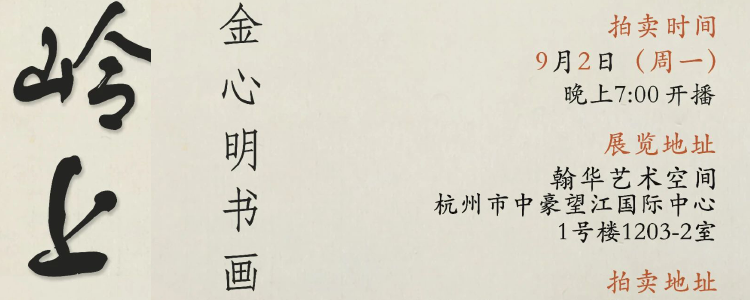 岭上
金心明书画
拍卖时间
9月2日（周一）
晚上7:00 开播
展览地址
翰华艺术空间
杭州市中豪望江国际中心
1号楼1203-2室
拍卖地址